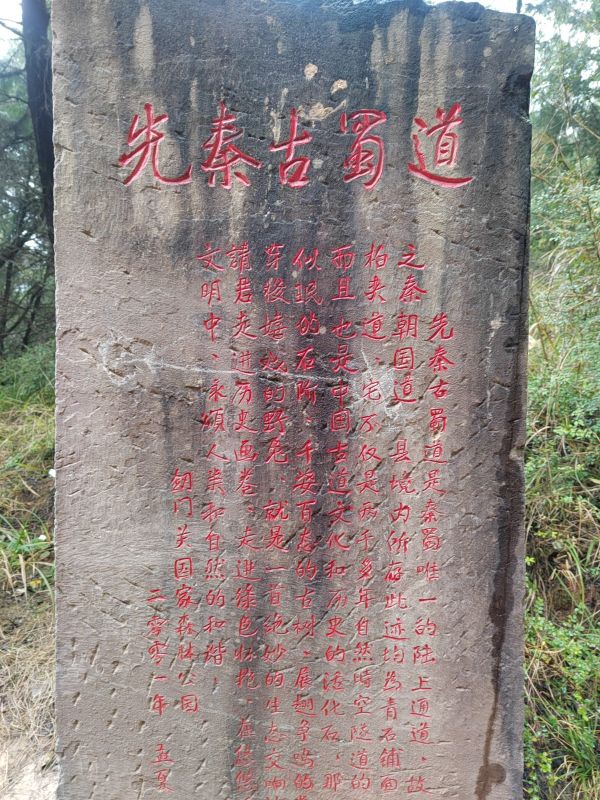 先秦古蜀道
先秦古蜀道是秦蜀唯一的陆上通道，故
之秦朝国道，县境内所存此迹均为青石铺面
柏夹道，它不仅是两千多年自然时空隧道的
而且也是中国古道文化和历史的活化石，那
似眠的石阶、千姿百态的古树、展翅争鸣的
芽稜嬉戏的野兔，就是一首绝妙的生态交响
请君走进历史画卷，走进绿色怀抱，在
文明中，永颂人类和自然的和谐，
剑门关国家森林公园
二零零一年 孟夏